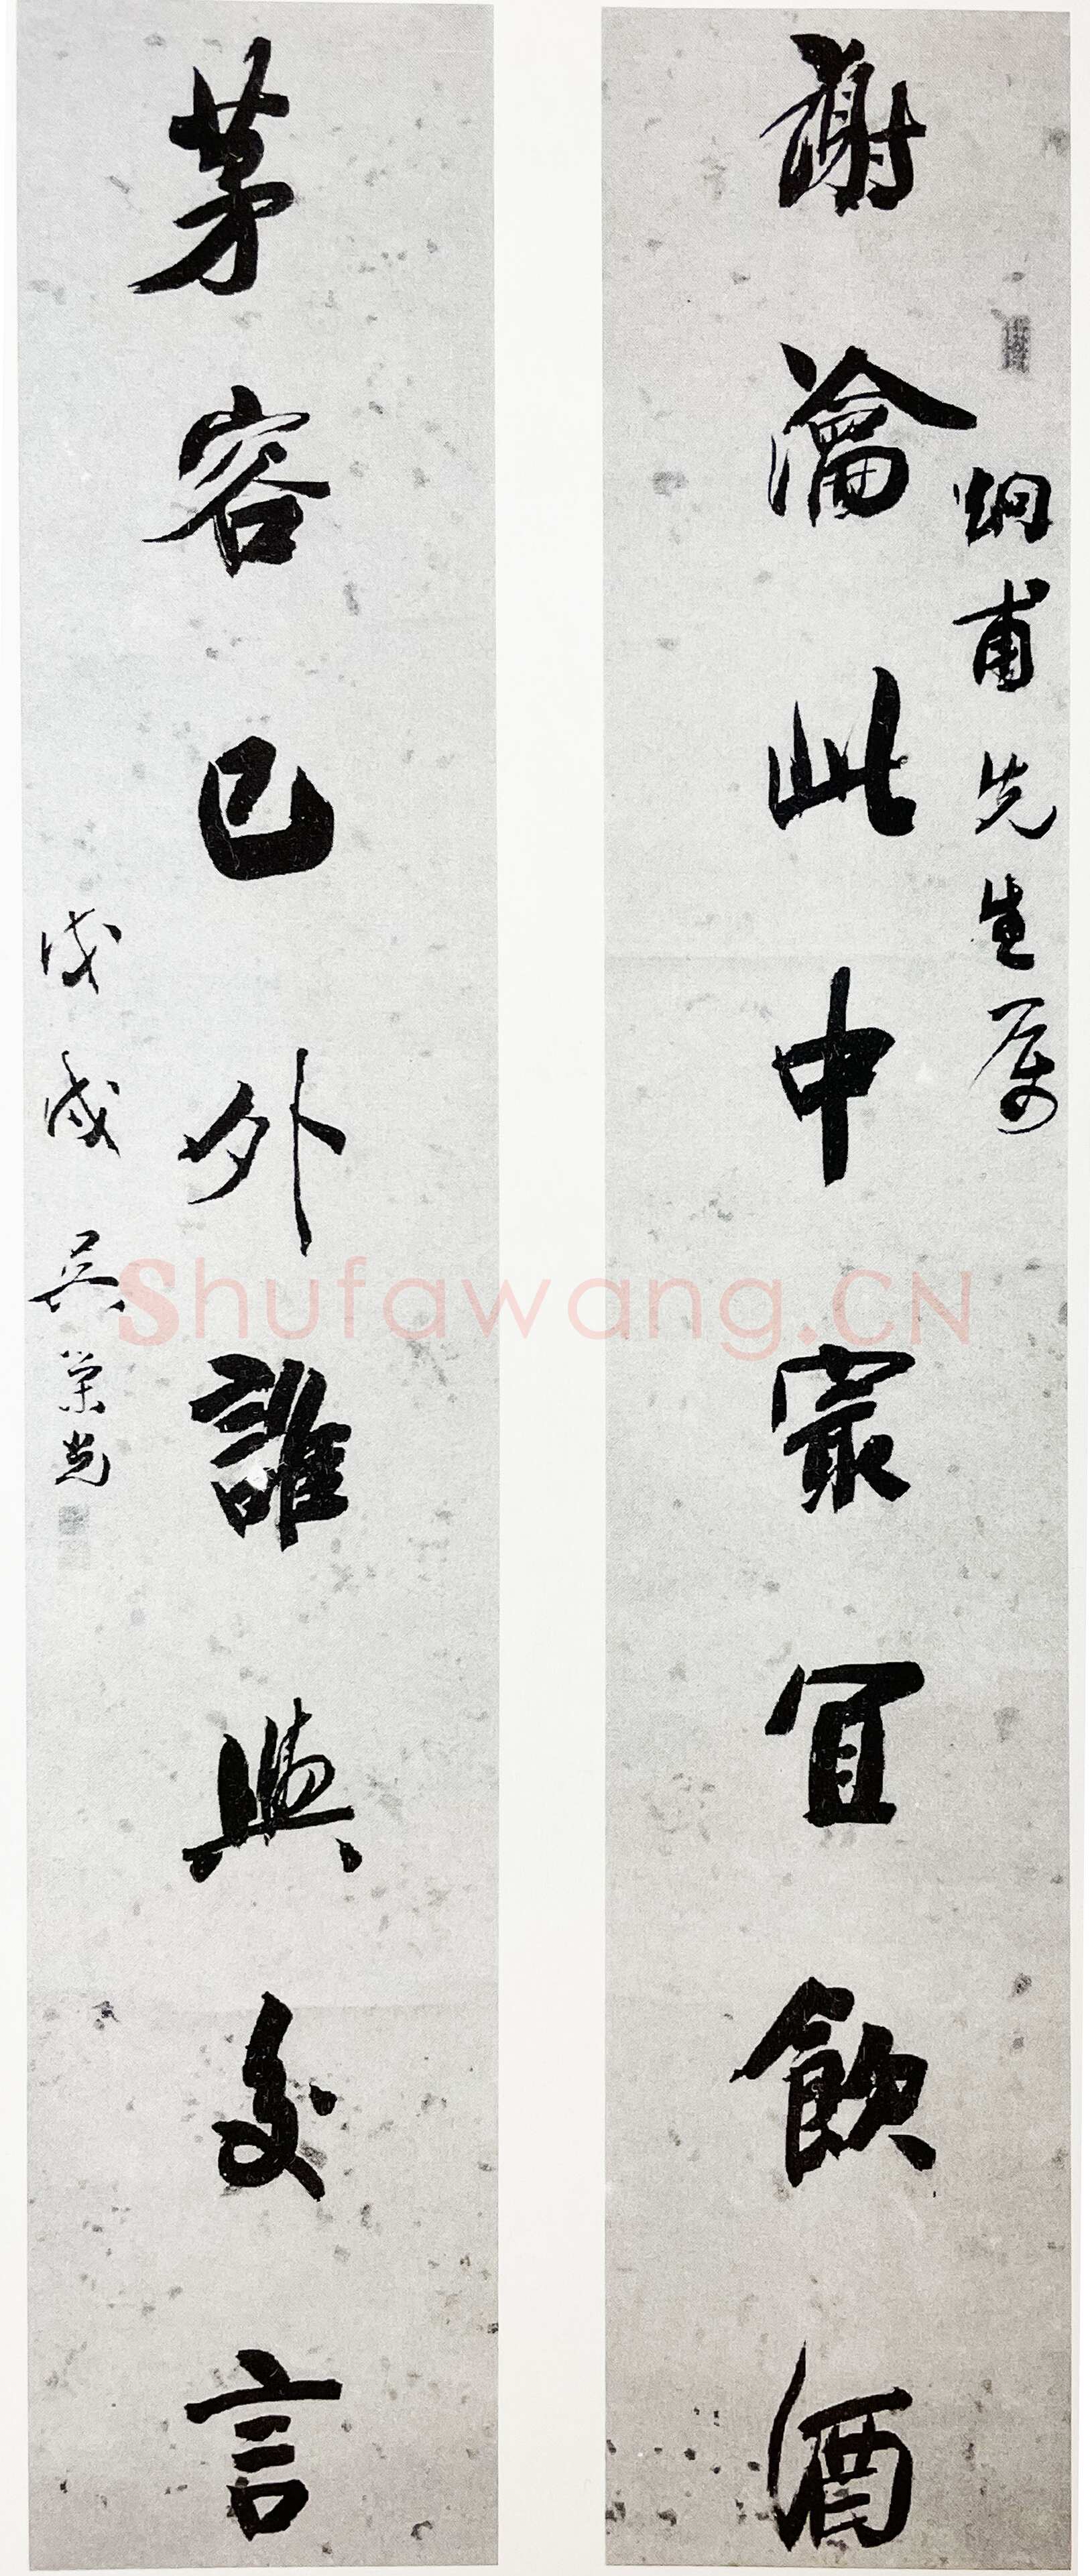 炯甫先生属
謝瀹此中㝡宜飲酒
茅容已外誰與交言
戊戌 吳榮光
Shufawang.CN